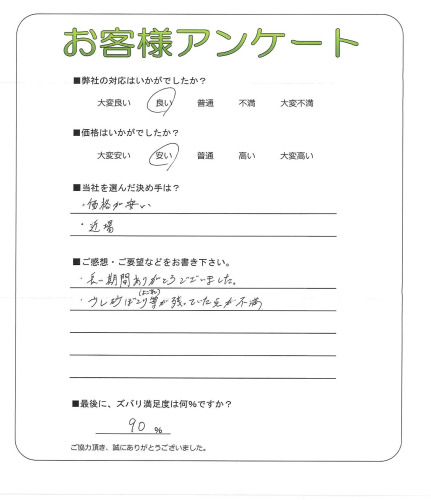 お客様アンケート
■弊社の対応はいかがでしたか？
大変良い 良い 普通 不満 大変不満
■価格はいかがでしたか？
大変安い 安い 普通 高い 大変高い
■当社を選んだ決め手は？
・価格が安い
・近場
■ご感想・ご要望などをお書き下さい。
・長期間ありがとうございました。
・少し砂ぼこり等が残っていた点が不満
■最後に、ズバリ満足度は何%ですか？
90 %
ご協力頂き、誠にありがとうございました。